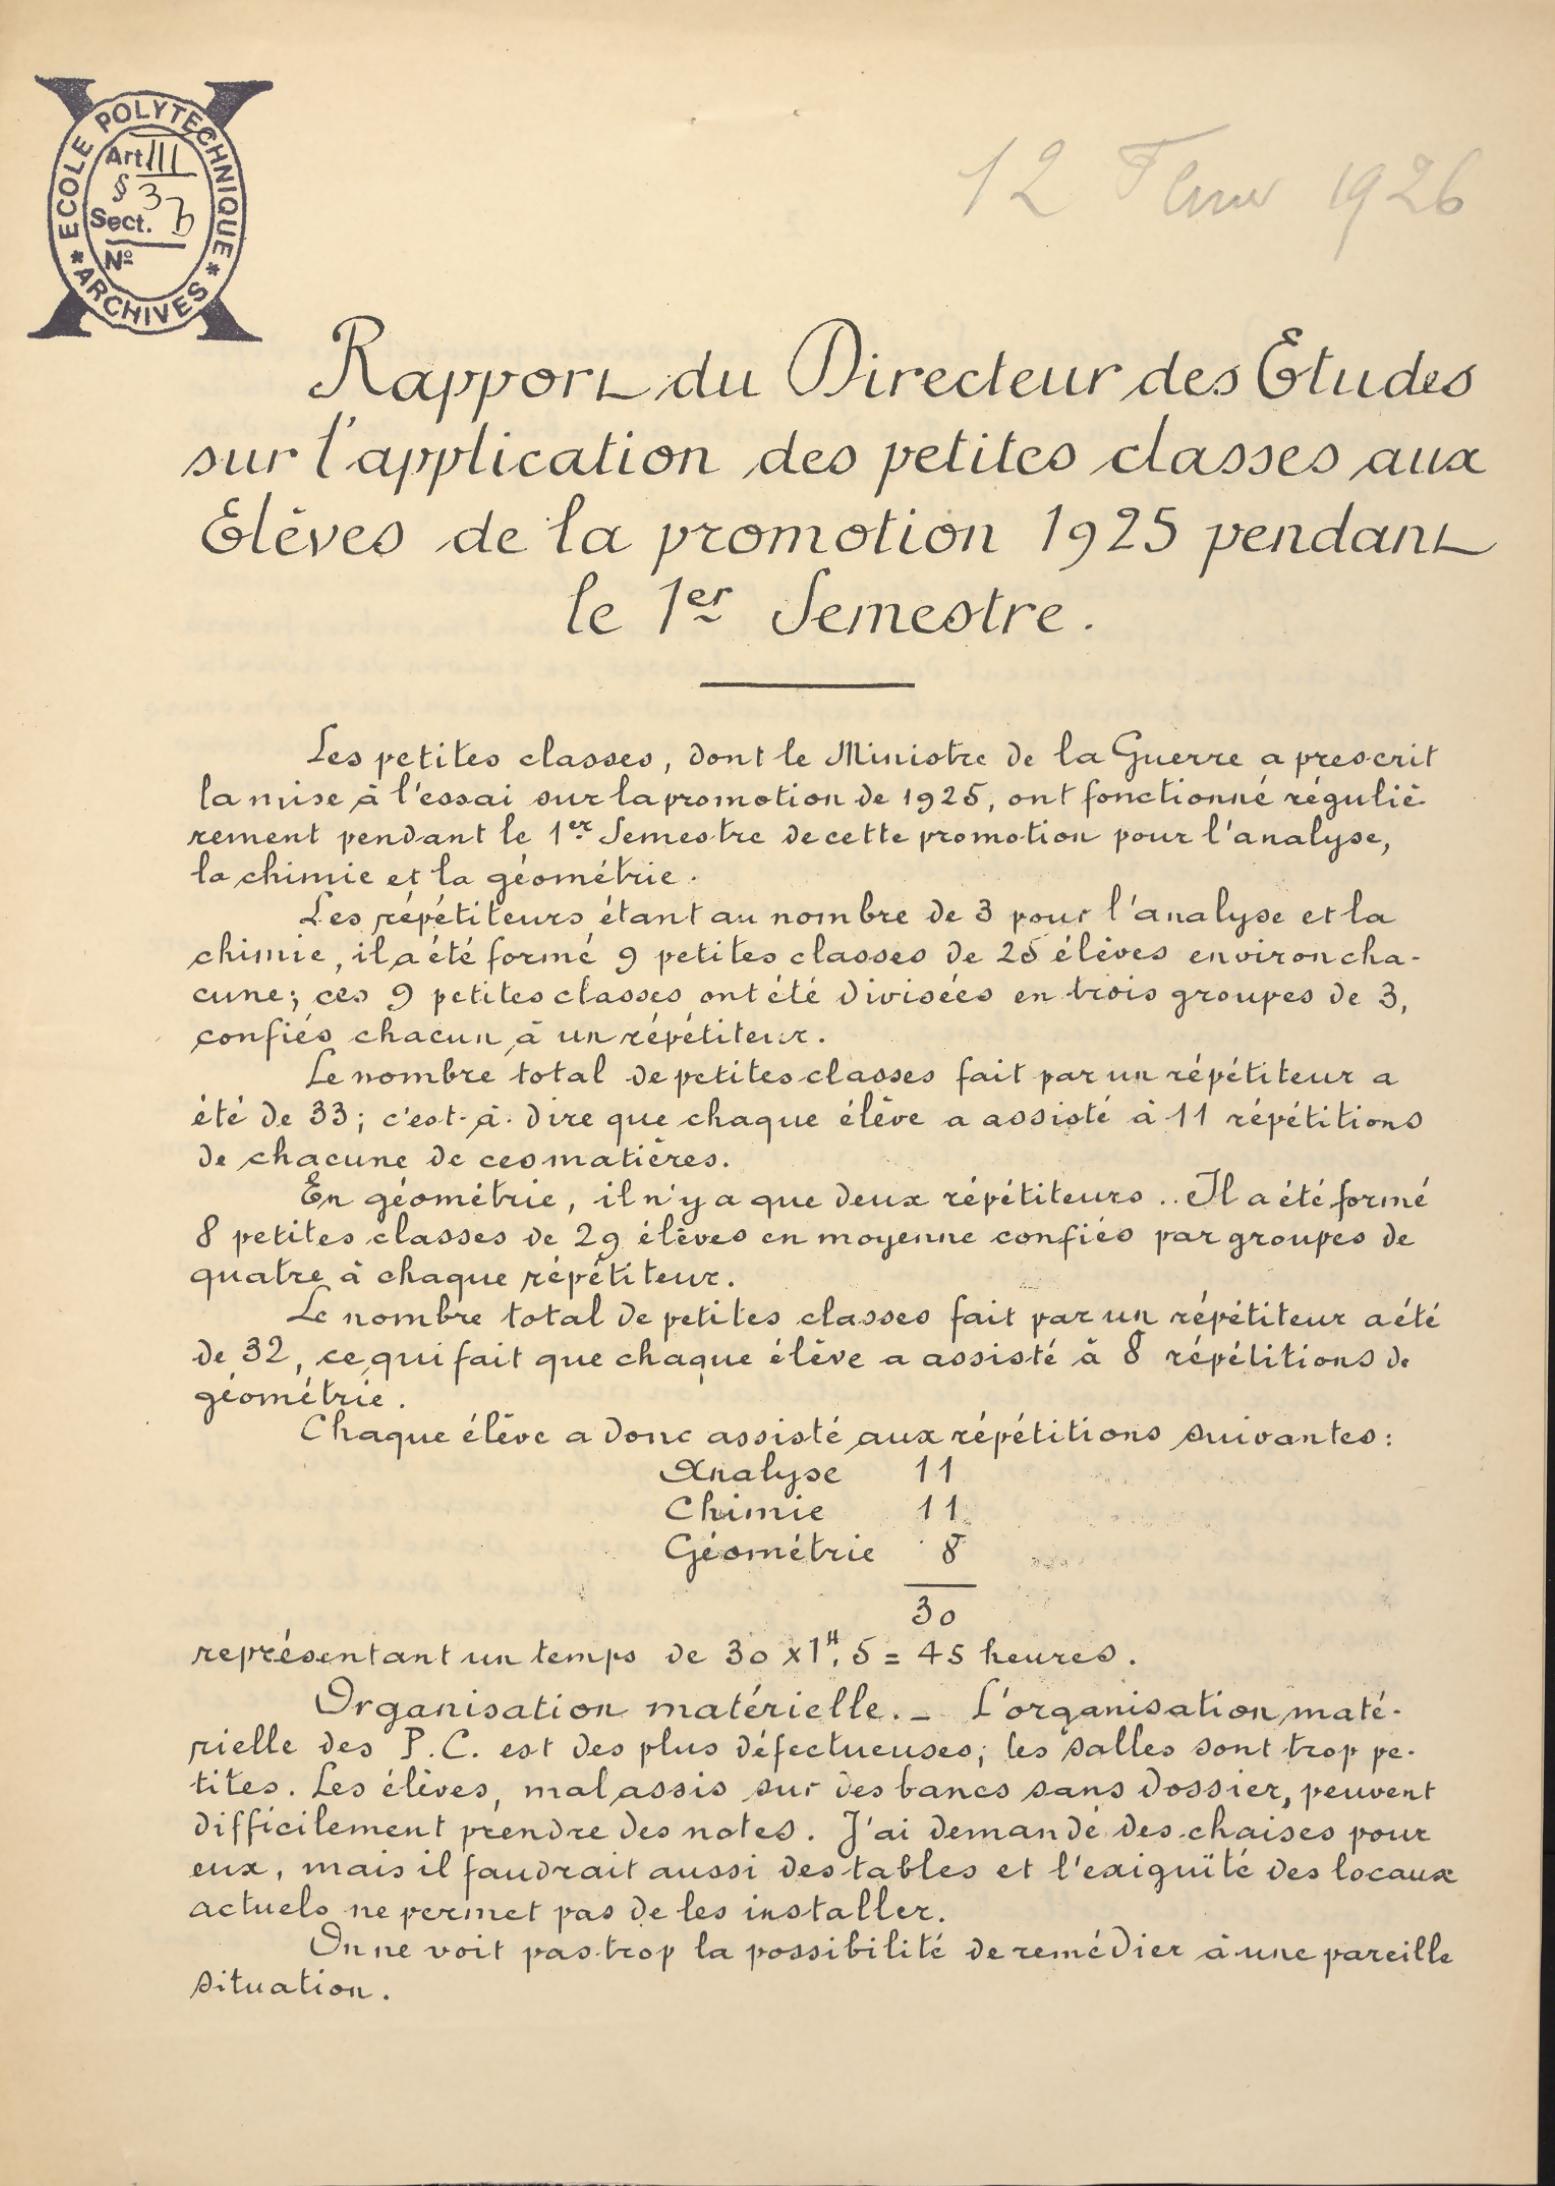 ECOLE POLYTECHNIQUE
* ARCHIVES *
Art III
§ 3
Sect. b
Nº
12 1926
Rapport du Directeur des Etudes
sur l'application des petites classes aux
Elèves de la promotion 1925 pendant
le 1er Semestre.
Les petites classes, dont le Ministre de la Guerre a prescrit
la mise à l'essai sur la promotion de 1925, ont fonctionné réguliè-
rement pendant le 1er Semestre de cette promotion pour l'analyse,
la chimie et la géométrie.
Les répétiteurs étant au nombre de 3 pour l'analyse et la
chimie, il a été formé 9 petites classes de 25 élèves environ cha-
cune; ces 9 petites classes ont été divisées en trois groupes de 3,
confiés chacun à un répétiteur.
Le nombre total de petites classes fait par un répétiteur a
été de 33; c'est-à-dire que chaque élève a assisté à 11 répétitions
de chacune de ces matières.
En géométrie, il n'y a que deux répétiteurs.. Il a été formé
8 petites classes de 29 élèves en moyenne confiés par groupes de
quatre à chaque répétiteur.
Le nombre total de petites classes fait par un répétiteur a été
de 32, ce qui fait que chaque élève a assisté à 8 répétitions de
géométrie.
Chaque élève a donc assisté aux répétitions suivantes:
Analyse 11
Chimie 11
Géométrie 8
30
représentant un temps de 30 x 1H,5 = 45 heures.
Organisation matérielle._ L'organisation maté-
rielle des P.C. est des plus défectueuses; les salles sont trop pe-
tites. Les élèves, mal assis sur des bancs sans dossier, peuvent
difficilement prendre des notes. J'ai demandé des chaises pour
eux, mais il faudrait aussi des tables et l'exiguïté des locaux
actuels ne permet pas de les installer.
On ne voit pas trop la possibilité de remédier à une pareille
situation.